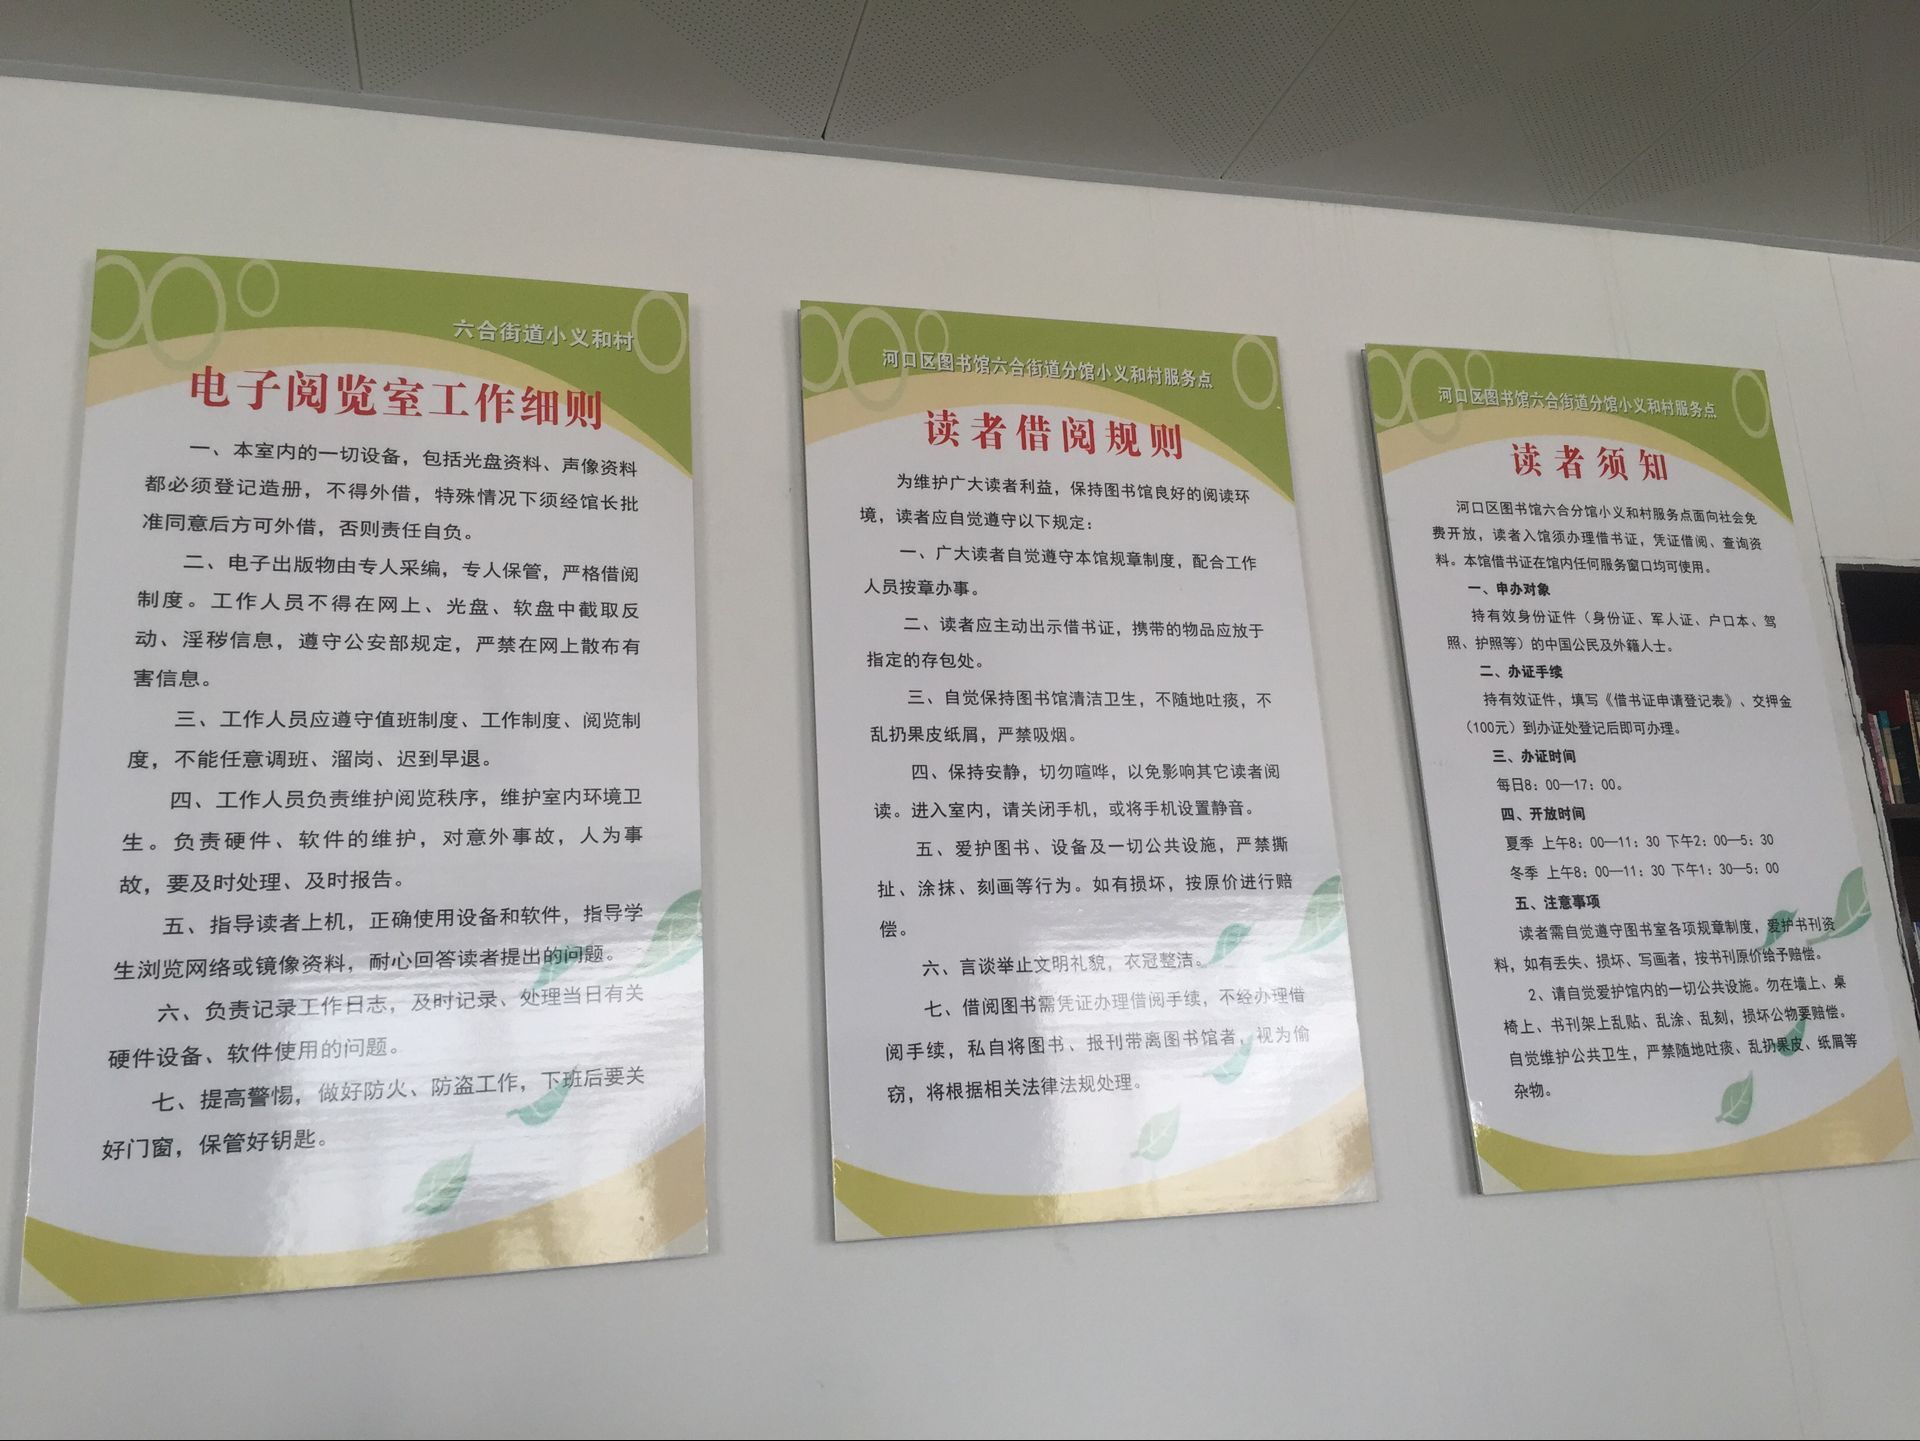 六合街道小义和村
电子阅览室工作细则
一、本室内的一切设备，包括光盘资料、声像资料
都必须登记造册，不得外借，特殊情况下须经馆长批
准同意后方可外借，否则责任自负。
二、电子出版物由专人采编，专人保管，严格借阅
制度。工作人员不得在网上、光盘、软盘中截取反
动、淫秽信息，遵守公安部规定，严禁在网上散布有
害信息。
三、工作人员应遵守值班制度、工作制度、阅览制
度，不能任意调班、溜岗、迟到早退。
四、工作人员负责维护阅览秩序，维护室内环境卫
生。负责硬件、软件的维护，对意外事故，人为事
故，要及时处理、及时报告。
五、指导读者上机，正确使用设备和软件，指导学
生浏览网络或镜像资料，耐心回答读者提出的问题。
六、负责记录工作日志，及时记录、处理当日有关
硬件设备、软件使用的问题。
七、提高警惕，做好防火、防盗工作，下班后要关
好门窗，保管好钥匙。
河口区图书馆六合街道分馆小义和村服务点
读者借阅规则
为维护广大读者利益，保持图书馆良好的阅读环
境，读者应自觉遵守以下规定：
一、广大读者自觉遵守本馆规章制度，配合工作
人员按章办事。
二、读者应主动出示借书证，携带的物品应放于
指定的存包处。
三、自觉保持图书馆清洁卫生，不随地吐痰，不
乱扔果皮纸屑，严禁吸烟。
四、保持安静，切勿喧哗，以免影响其它读者阅
读。进入室内，请关闭手机，或将手机设置静音。
五、爱护图书、设备及一切公共设施，严禁撕
扯、涂抹、刻画等行为。如有损坏，按原价进行赔
偿。
六、言谈举止文明礼貌，衣冠整洁。
七、借阅图书需凭证办理借阅手续，不经办理借
阅手续，私自将图书、报刊带离图书馆者，视为偷
窃，将根据相关法律法规处理。
河口区图书馆六合街道分馆小义和村服务点
读者须知
河口区图书馆六合分馆小义和村服务点面向社会免
费开放，读者入馆须办理借书证，凭证借阅、查询资
料。本馆借书证在馆内任何服务窗口均可使用。
一、申办对象
持有效身份证件（身份证、军人证、户口本、驾
照、护照等）的中国公民及外籍人士。
二、办证手续
持有效证件，填写《借书证申请登记表》、交押金
（100元）到办证处登记后即可办理。
三、办证时间
每日8：00—17：00。
四、开放时间
夏季 上午8：00—11：30 下午2：00—5：30
冬季 上午8：00—11：30 下午1：30—5：00
五、注意事项
读者需自觉遵守图书室各项规章制度，爱护书刊资
料，如有丢失、损坏、写画者，按书刊原价给予赔偿。
2、请自觉爱护馆内的一切公共设施。勿在墙上、桌
椅上、书刊架上乱贴、乱涂、乱刻，损坏公物要赔偿。
自觉维护公共卫生，严禁随地吐痰、乱扔果皮、纸屑等
杂物。